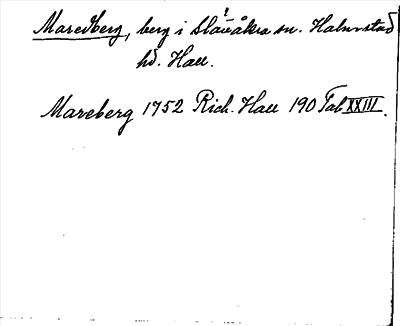 Maredberg, berg i Slättåkra sn. Halmstad
hd. Hall.
Mareberg 1752 Rich. Hall 190 Tab XXIII.